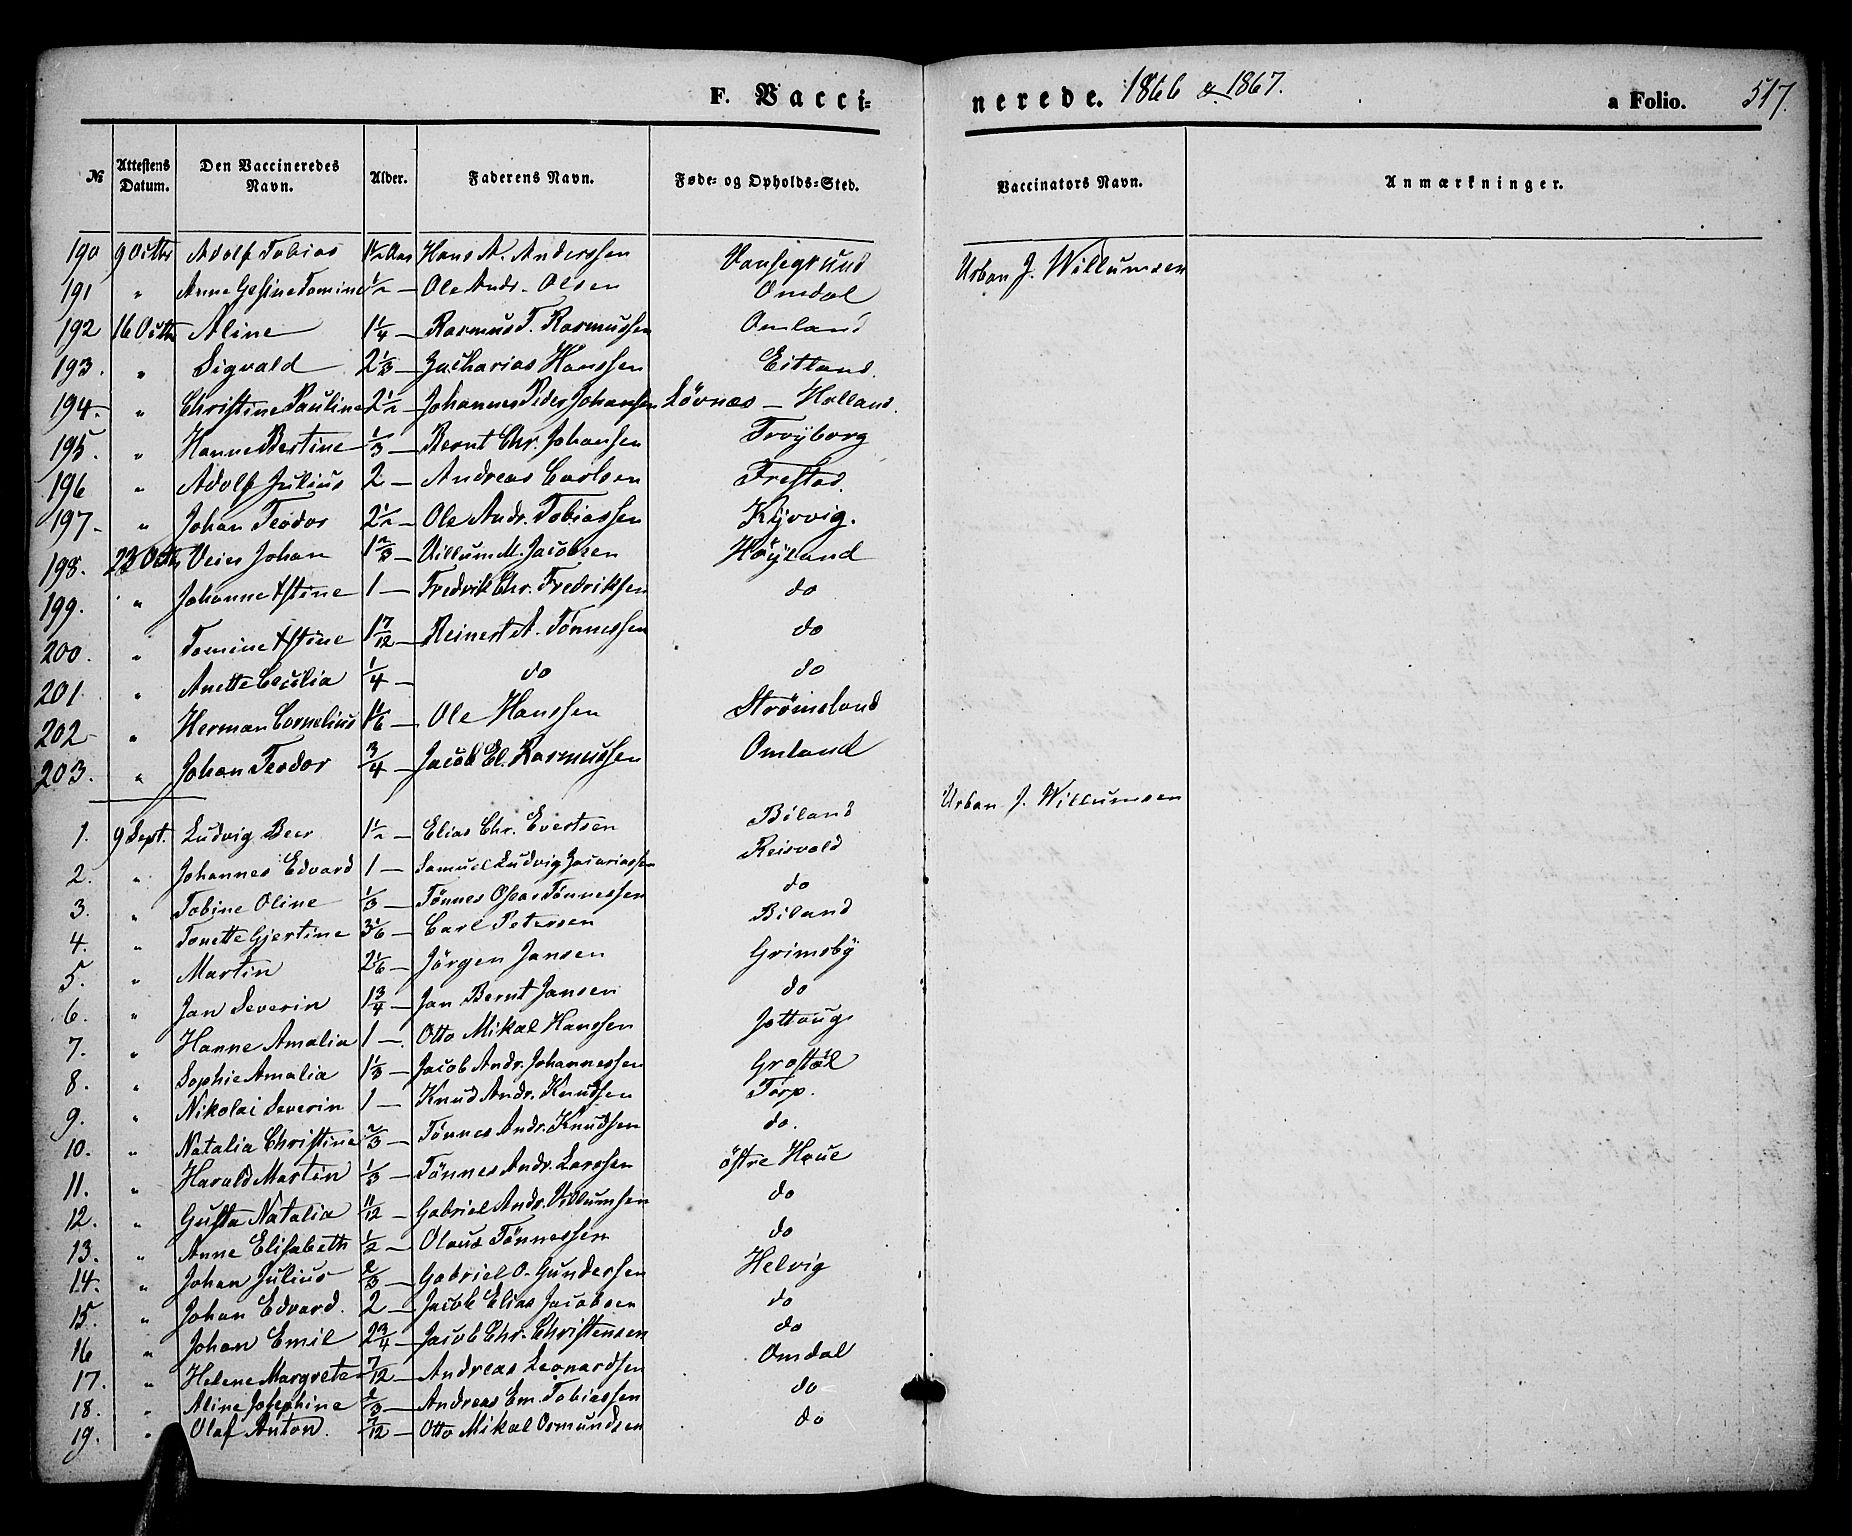 F. Vacci- nerede. 1866 & 1867. a Folio. 517.
№ Attestens Datum. Den Vaccineredes Navn. Alder. Faderens Navn. Føde- og Opholds-Sted. Vaccinators Navn. Anmærkninger.
190 9 Octbr Adolf Tobias 1½ Aar Hans A. Anderssen Vansegrund Urban J. Willumsen
191 " Anne Gesine Tomine ½ — Ole Andr. Olsen Omdal
192 16 Octbr Aline 1¼ — Rasmus T. Rasmussen Omland
193. " Sigvald 2⅓ — Zacharias Hanssen Eitland.
194. " Christine Pauline 2½ — Johannes Peder Johansen Lövnæs — Holland.
195. " Hanne Bertine ⅓ — Bernt Chr. Johansen Tröÿborg
196 " Adolf Julius 2 — Andreas Carlsen Frestad.
197. " Johan Teodor 2½ — Ole Andr. Tobiassen Kjörvig.
198. 23 Octb Veier Johan 1⅔ — Villum M. Jacobsen Höÿland
199. " Johanne Astine 1 — Fredrik Chr. Fredriksen do
200. " Tomine Astine 1 7/12 — Reinert A. Tönnessen do
201 " Anette Cecilia ¼ — do do
202 " Herman Cornelius 1⅙ — Ole Hanssen Strömsland
203. " Johan Teodor ¾ — Jacob El. Rasmussen Omland
1. 9 Sept. Ludvig Beer 1½ — Elias Chr. Evertsen Biland Urban J. Willumsen
2. " Johannes Edvard 1 — Samuel Ludvig Zacariassen Reisvold
3. " " Tobine Oline ⅓ — Tönnes Oscar Tönnessen do
4. " Tonette Gjertine 3⅙ — Carl Petersen Biland
5. " Martin 2⅙ — Jörgen Jansen Grimsbÿ
6. " Jan Severin 1¾ — Jan Bernt Jansen do
7. " Hanne Amalia 1 — Otto Mikal Hanssen Jottaug
8. " Sophie Amalia 1⅓ — Jacob Andr. Johannessen Grostöl
9. " Nikolai Severin 1 — Knud Andr. Knudsen Torp.
10. " Natalia Christine ⅔ — Tönnes Andr. Knudsen do.
11. " Harald Martin ⅓ — Tönnes Andr. Larssen östre Haue
12. " Gusta Natalia 11/12 — Gabriel Andr. Villumsen do
13. " Anne Elisabeth ½ — Olaus Tönnessen do
14. " Johan Julius ⅔ — Gabriel O. Gundersen Helvig
15. " Johan Edvard. 2 — Jacob Elias Jacobsen do
16 " Johan Emil 2¾ — Jacob Chr. Christensen do
17. " Helene Margrete 7/12 — Andreas Leonardsen Omdal
18. " Aline Josephine ⅔ — Andreas Em. Tobiassen do
19. " Olaf Anton. 7/12 — Otto Mikal Osmundsen do